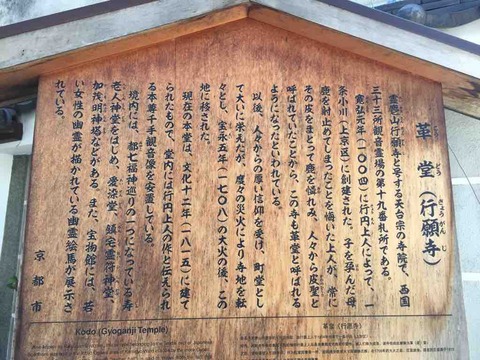 革堂（行願寺）
こうどう ぎょうがんじ
霊麀山行願寺と号する天台宗の寺院で、西国
三十三所観音霊場の第十九番札所である。
寛弘元年（一〇〇四）に行円上人によって、一
条小川（上京区）に創建された。子を孕んだ母
鹿を射止めてしまったことを悔いた上人が、常に
その皮をまとって鹿を憐れみ、人々から皮聖と
呼ばれていたことから、この寺も革堂と呼ばれる
ようになったといわれている。
以後、人々からの厚い信仰を受け、町堂とし
て大いに栄えたが、度々の災火により寺地を転
々とし、宝永五年（一七〇八）の大火の後、この
地に移された。
現在の本堂は、文化十二年（一八一五）に建て
られたもので、堂内には行円上人の作と伝えられ
る本尊千手観音像を安置している。
境内には、都七福神巡りの一つになっている寿
老人神堂をはじめ、愛染堂、鎮宅霊符神堂、
加茂明神塔などがある。また、宝物館には、若
い女性の幽霊が描かれている幽霊絵馬が展示さ
れている。
京都市
Kodo (Gyoganji Temple)